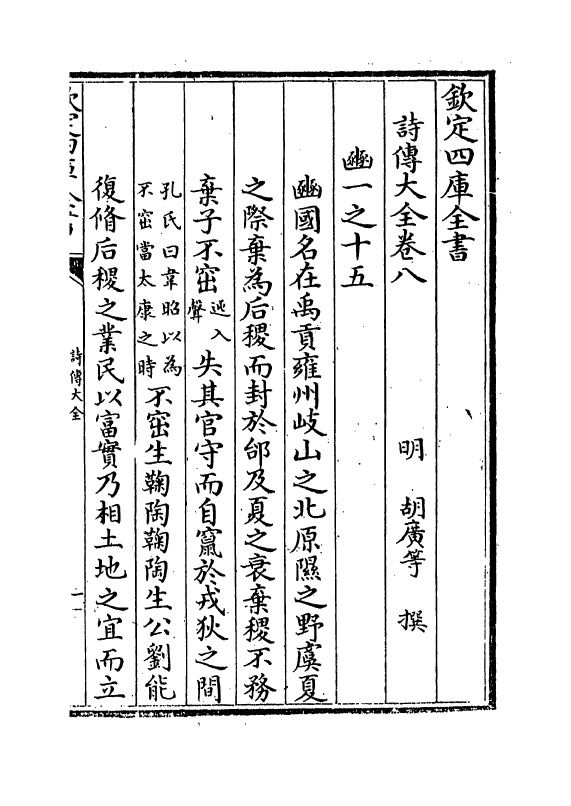 欽定四庫全書
詩傳大全卷八
明　胡廣等　撰
豳一之十五
豳國名在禹貢雍州岐山之北原隰之野虞夏
之際棄為后稷而封於邰及夏之衰棄稷不務
棄子不窋
逝入
聲
失其官守而自竄於戎狄之間
孔氏曰韋昭以為
不窋當太康之時
不窋生鞠陶鞠陶生公劉能
復脩后稷之業民以富實乃相土地之宜而立
欽定四庫全書
詩傳大全
一